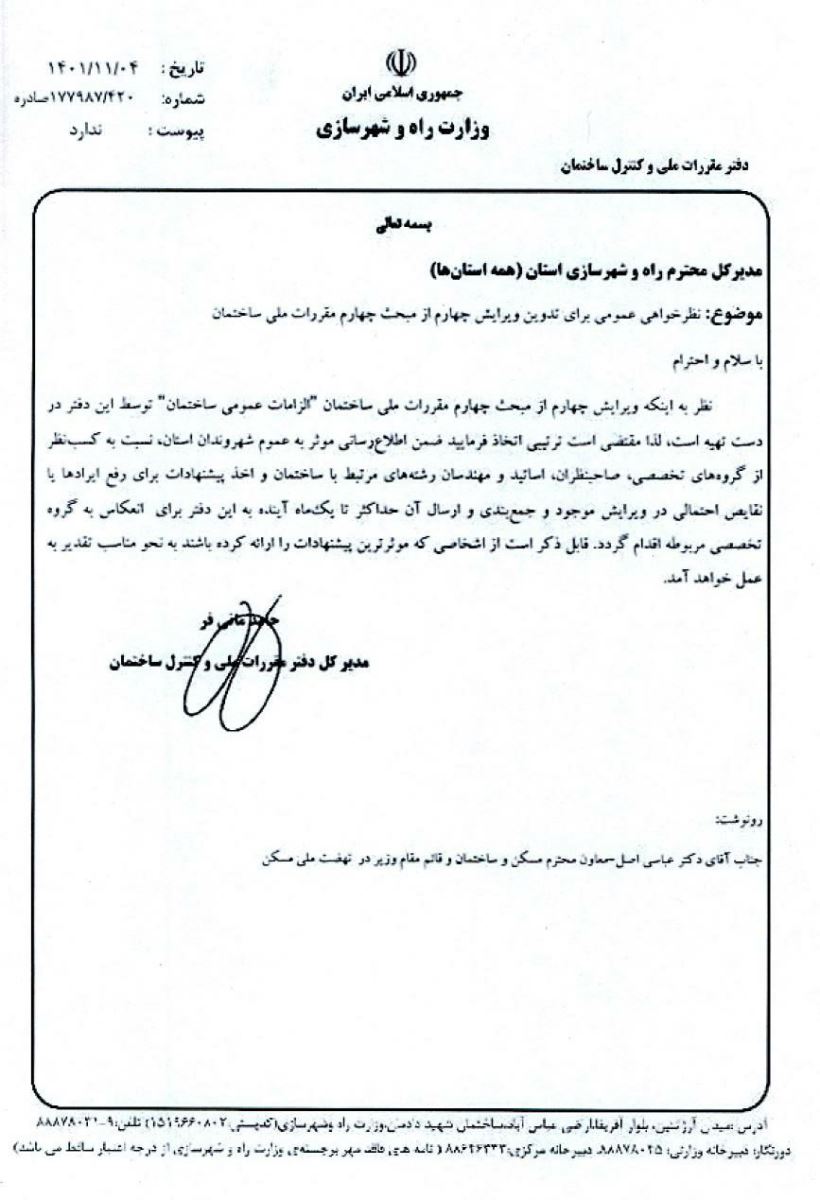 جمهوری اسلامی ایران
وزارت راه و شهرسازی
تاریخ : ۱۴۰۱/۱۱/۰۴
شماره: ۱۷۷۹۸۷/۴۲۰صادره
پیوست : ندارد
دفتر مقررات ملی و کنترل ساختمان
بسمه تعالی
مدیرکل محترم راه و شهرسازی استان (همه استان‌ها)
موضوع: نظرخواهی عمومی برای تدوین ویرایش چهارم از مبحث چهارم مقررات ملی ساختمان
با سلام و احترام
نظر به اینکه ویرایش چهارم از مبحث چهارم مقررات ملی ساختمان "الزامات عمومی ساختمان" توسط این دفتر در
دست تهیه است، لذا مقتضی است ترتیبی اتخاذ فرمایید ضمن اطلاع‌رسانی موثر به عموم شهروندان استان، نسبت به کسب‌نظر
از گروه‌های تخصصی، صاحبنظران، اساتید و مهندسان رشته‌های مرتبط با ساختمان و اخذ پیشنهادات برای رفع ایرادها یا
نقایص احتمالی در ویرایش موجود و جمع‌بندی و ارسال آن حداکثر تا یک‌ماه آینده به این دفتر برای انعکاس به گروه
تخصصی مربوطه اقدام گردد. قابل ذکر است از اشخاصی که موثرترین پیشنهادات را ارائه کرده باشند به نحو مناسب تقدیر به
عمل خواهد آمد.
حامد مانی فر
مدیر کل دفتر مقررات ملی و کنترل ساختمان
رونوشت:
جناب آقای دکتر عباسی اصل-معاون محترم مسکن و ساختمان و قائم مقام وزیر در نهضت ملی مسکن
آدرس :میدان آرژانتین، بلوار آفریقا،اراضی عباس آباد،ساختمان شهید دادمان،وزارت راه وشهرسازی(کدپستی:۱۵۱۹۶۶۰۸۰۲) تلفن:۹-۸۸۸۷۸۰۳۱
دورنگار: دبیرخانه وزارتی: ۸۸۸۷۸۰۴۵ دبیرخانه مرکزی:۸۸۶۴۶۳۴۳ ( نامه های فاقد مهر برجسته‌ی وزارت راه و شهرسازی از درجه اعتبار ساقط می باشد)